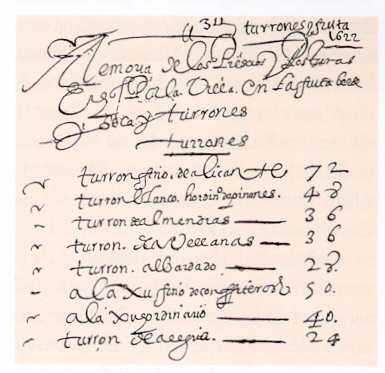 311 turrones y fruta
1622
Memoria de los Presios y Posturas
a la Vi
En la fruta
seca y turrones
turrones
turron fino. de alicante 72
turron blanco hordinº de pinones. 48
turron de almendras 36
turron. de aVellanas 36
turron. albardado 28.
alaxu fino de confiteros 50.
alaxu gordinario 40.
turron de alegria. 24